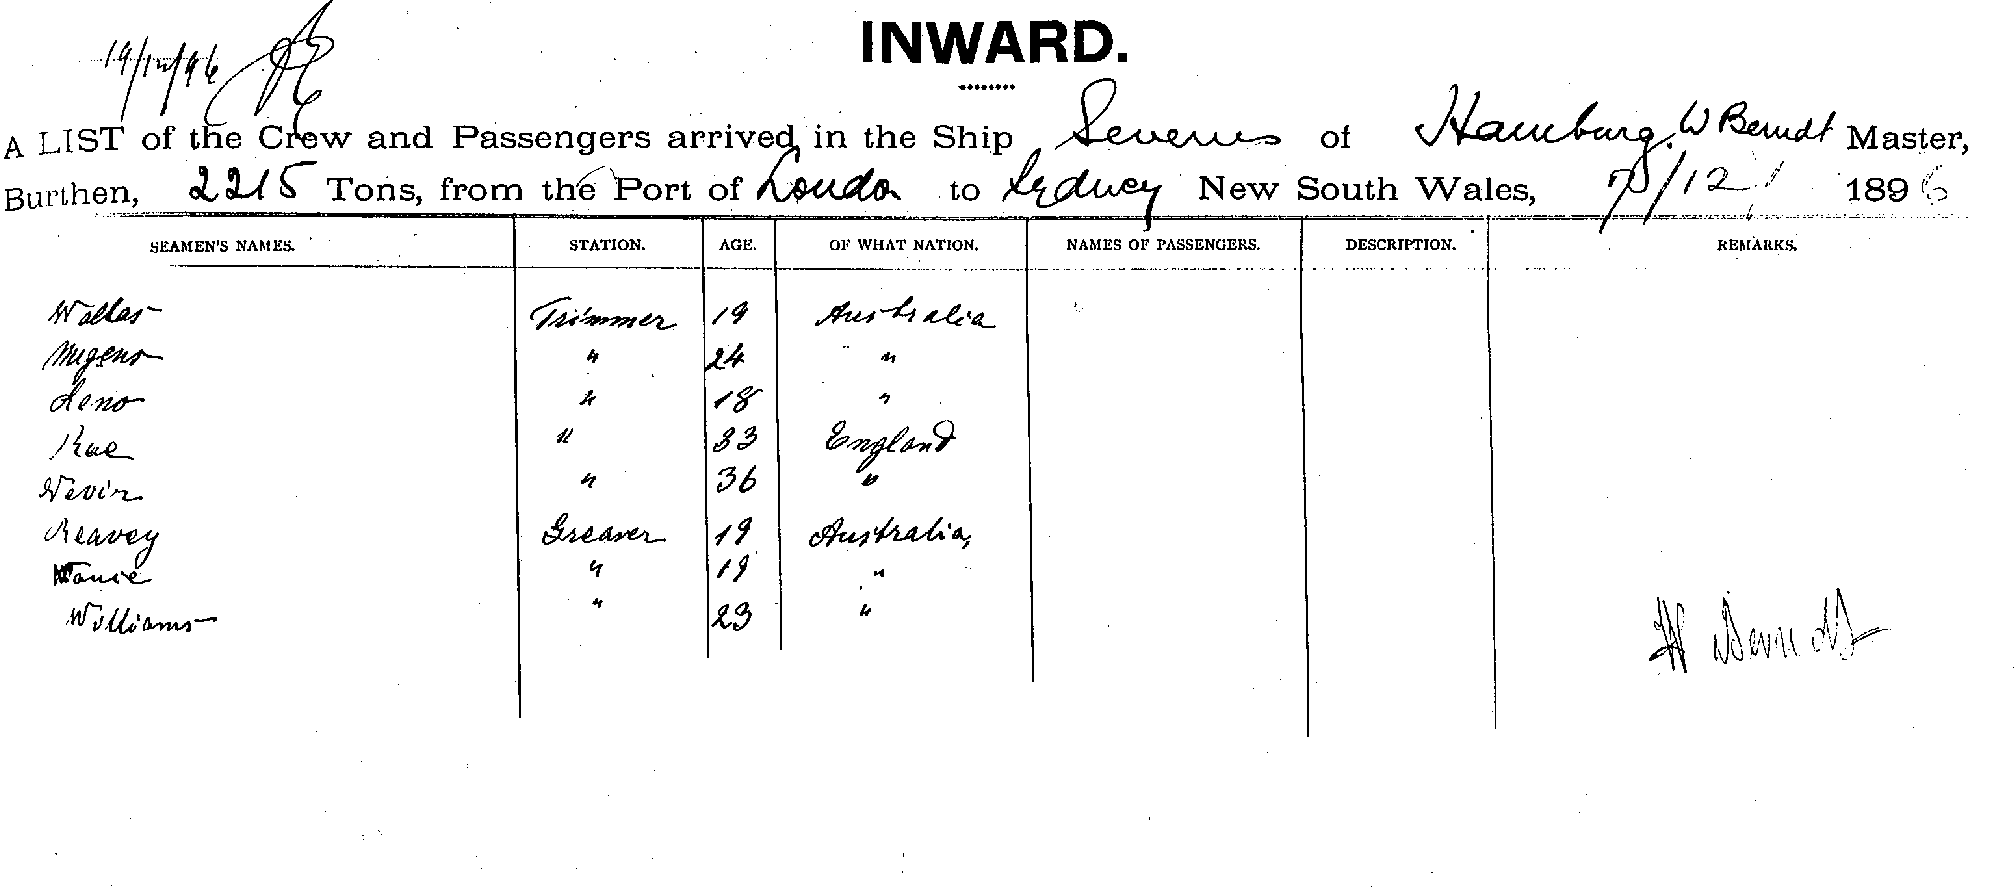 19/12/96
INWARD.
A LIST of the Crew and Passengers arrived in the Ship Severus of Hamburg. W Berndt Master,
Burthen, 2215 Tons, from the Port of London to Sydney New South Wales, /12 1896
SEAMEN'S NAMES. STATION. AGE. OF WHAT NATION. NAMES OF PASSENGERS. DESCRIPTION. REMARKS.
Trimmer 19 Australia
" 24 "
" 18 "
Rae " 33 England
Nevin " 36 "
Reavey Greaser 19 Australia,
" 19 "
Williams " 23 "
W Berndt